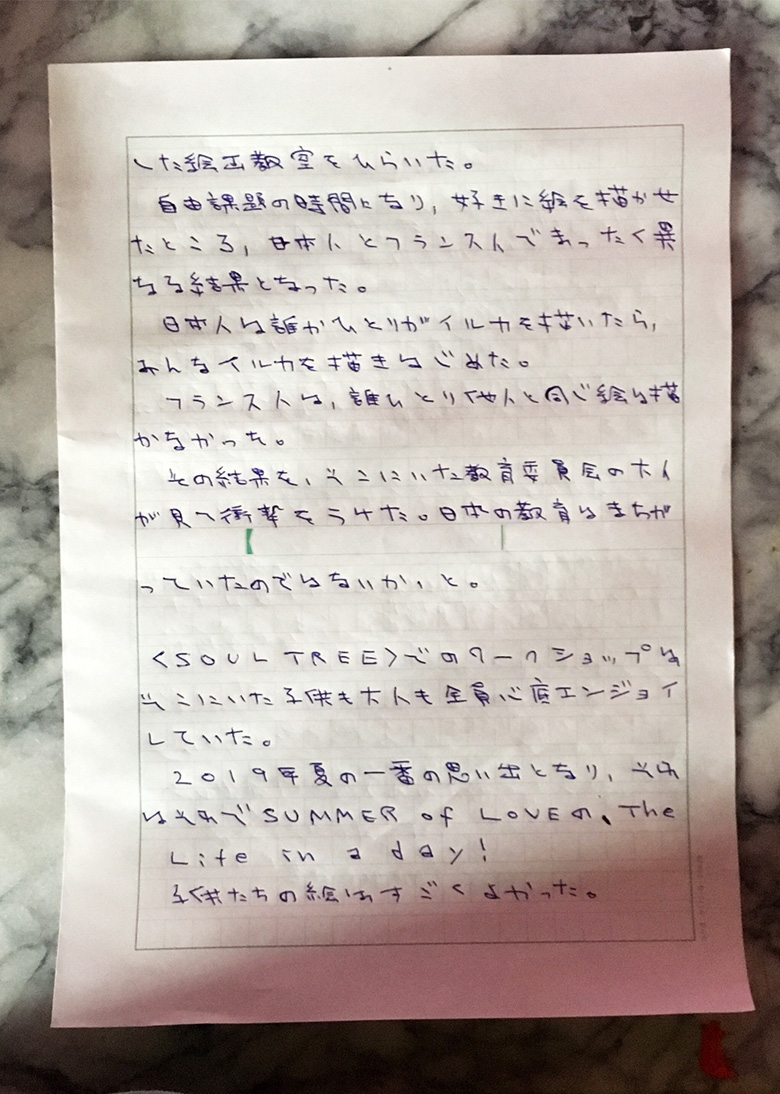 した絵画教室をひらいた。
自由課題の時間となり,好きに絵を描かせ
たところ,日本人とフランス人でまったく異
なる結果となった。
日本人は誰かひとりがイルカを描いたら,
みんなイルカを描きはじめた。
フランス人は,誰ひとり他人と同じ絵は描
かなかった。
その結果を,そこにいた教育委員会の大人
が見て衝撃をうけた。日本の教育はまちが
っていたのではないか,と。
<SOUL TREE>でのワークショップは
そこにいた子供も大人も全員心底エンジョイ
していた。
2019年夏の一番の思い出となり,それ
はそれでSUMMER of LOVEの、The
Life in a day!
子供たちの絵はすごくよかった。